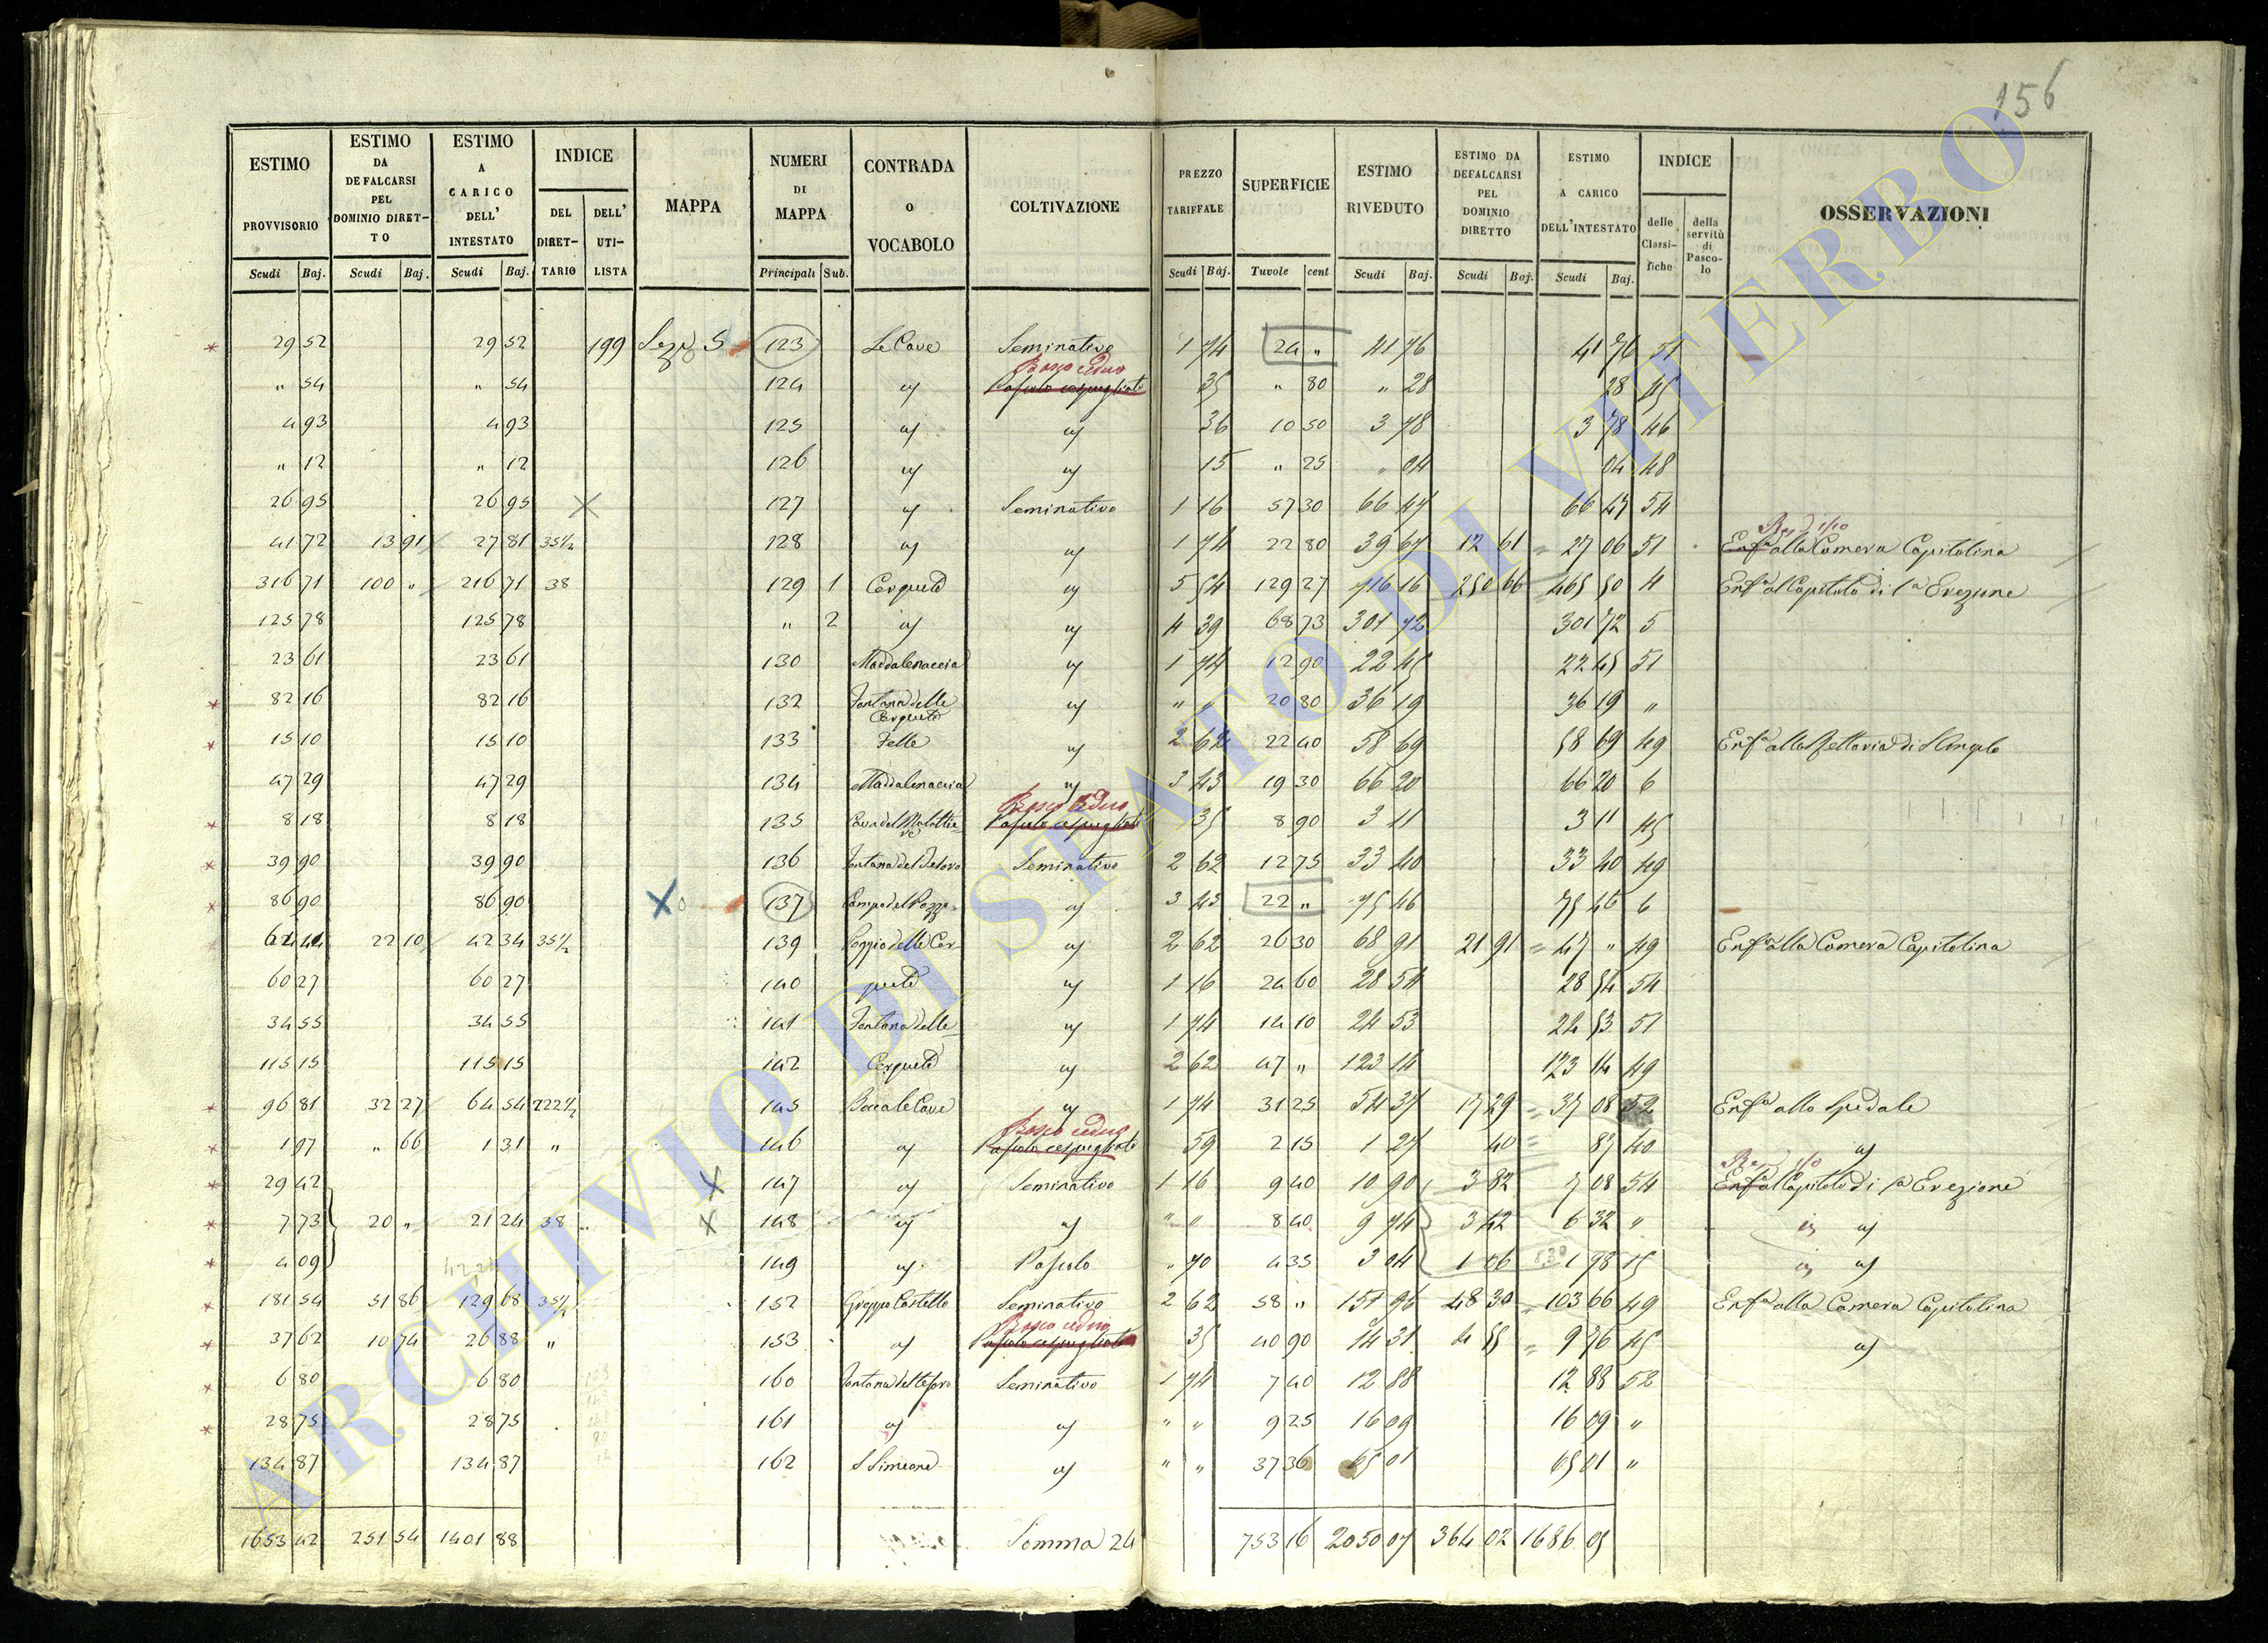 156
ESTIMO PROVVISORIO | ESTIMO DA DEFALCARSI PEL DOMINIO DIRETTO | ESTIMO A CARICO DELL' INTESTATO | INDICE DEL DIRETTARIO | DELL' UTILISTA | MAPPA | NUMERI DI MAPPA | CONTRADA O VOCABOLO | COLTIVAZIONE | PREZZO TARIFFALE | SUPERFICIE | ESTIMO RIVEDUTO | ESTIMO DA DEFALCARSI PEL DOMINIO DIRETTO | ESTIMO A CARICO DELL'INTESTATO | INDICE delle Classifiche | della servitù di Pascolo | OSSERVAZIONI
Scudi Baj. | Scudi Baj. | Scudi Baj. | Principali Sub. | Scudi Baj. | Tavole cent | Scudi Baj. | Scudi Baj. | Scudi Baj.
29 52 | 29 52 | 199 | Sez. 5 | 123 | Le Cave | Seminativo | 1 74 | 24 " | 41 76 | 41 76 | 51
" 54 | " 54 | 124 | " | Bosco ceduo Pascolo cespugliato | 35 | " 80 | " 28 | 28 | 45
4 93 | 4 93 | 125 | " | " | 36 | 10 50 | 3 78 | 3 78 | 46
" 12 | " 12 | 126 | " | " | 15 | " 25 | " 04 | 04 | 48
26 95 | 26 95 | 127 | " | Seminativo | 1 16 | 57 30 | 66 47 | 66 47 | 54
41 72 | 13 91 | 27 81 | 35½ | 128 | " | " | 1 74 | 22 80 | 39 67 | 12 61 | 27 06 | 51 | Enfa alla Camera Capitolina
316 71 | 100 " | 216 71 | 38 | 129 1 | Cerquete | " | 5 54 | 129 27 | 716 16 | 250 66 | 465 50 | 4 | Enfa al Capitolo di 1a Erezione
125 78 | 125 78 | " 2 | " | " | 4 39 | 68 73 | 301 72 | 301 72 | 5
23 61 | 23 61 | 130 | Maddalenaccia | " | 1 74 | 12 90 | 22 45 | 22 45 | 51
82 16 | 82 16 | 132 | Fontana delle Cerquete | " | " " | 20 80 | 36 19 | 36 19 | "
15 10 | 15 10 | 133 | Felle | " | 2 62 | 22 40 | 58 69 | 58 69 | 49 | Enfa alla Rettoria di S Angelo
47 29 | 47 29 | 134 | Maddalenaccia | " | 3 43 | 19 30 | 66 20 | 66 20 | 6
8 18 | 8 18 | 135 | Cava del | Bosco Ceduo Pascolo cespugliato | 35 | 8 90 | 3 11 | 3 11 | 45
39 90 | 39 90 | 136 | Fontana del Tesoro | Seminativo | 2 62 | 12 75 | 33 40 | 33 40 | 49
86 90 | 86 90 | 137 | Campo del Pozzo | " | 3 43 | 22 " | 75 46 | 75 46 | 6
64 44 | 22 10 | 42 34 | 35½ | 139 | Poggio delle Cer | " | 2 62 | 26 30 | 68 91 | 21 91 | 47 " | 49 | Enfa alla Camera Capitolina
60 27 | 60 27 | 140 | quete | " | 1 16 | 24 60 | 28 54 | 28 54 | 54
34 55 | 34 55 | 141 | Fontana delle | " | 1 74 | 14 10 | 24 53 | 24 53 | 51
115 15 | 115 15 | 142 | Cerquete | " | 2 62 | 47 " | 123 14 | 123 14 | 49
96 81 | 32 27 | 64 54 | 222½ | 145 | Bocca le Cave | " | 1 74 | 31 25 | 54 37 | 17 29 | 37 08 | 52 | Enfa allo Spedale
1 97 | " 66 | 1 31 | " | 146 | " | Bosco ceduo Pascolo cespugliato | 59 | 2 15 | 1 27 | 40 | 87 | 40 | "
29 42 | 147 | " | Seminativo | 1 16 | 9 40 | 10 90 | 3 82 | 7 08 | 54 | Enfa al Capitolo di 1a Erezione
7 73 | 20 " | 21 24 | 38 | 148 | " | " | " " | 8 40 | 9 74 | 3 42 | 6 32 | " | "
4 09 | 149 | " | Pascolo | " 70 | 4 35 | 3 04 | 1 06 | 1 98 | 15 | "
181 54 | 51 86 | 129 68 | 35½ | 152 | Greppo Castello | Seminativo | 2 62 | 58 " | 151 96 | 48 30 | 103 66 | 49 | Enfa alla Camera Capitolina
37 62 | 10 74 | 26 88 | " | 153 | " | Bosco ceduo Pascolo cespugliato | 35 | 40 90 | 14 31 | 4 55 | 9 76 | 45 | "
6 80 | 6 80 | 160 | Fontana del Tesoro | Seminativo | 1 74 | 7 40 | 12 88 | 12 88 | 52
28 75 | 28 75 | 161 | " | " | " " | 9 25 | 16 09 | 16 09 | "
134 87 | 134 87 | 162 | S Simeone | " | " " | 37 36 | 65 01 | 65 01 | "
1653 42 | 251 54 | 1401 88 | Somma 24 | 753 16 | 2050 07 | 364 02 | 1686 05
ARCHIVIO DI STATO DI VITERBO